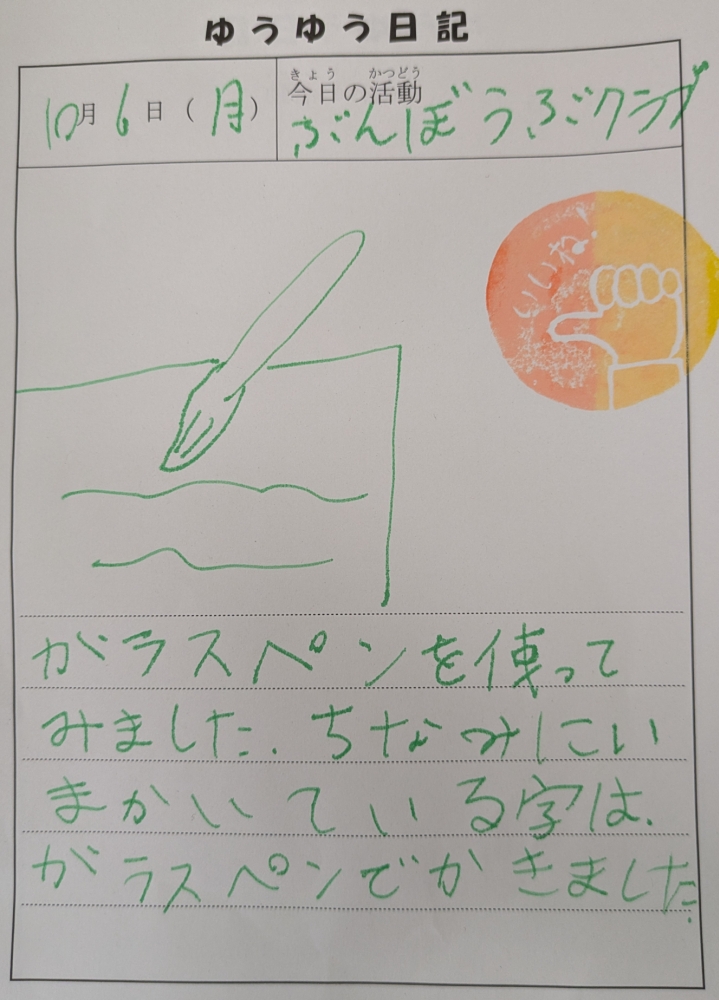 ゆうゆう日記
10月6日(月)
きょう かつどう
今日の活動
ぶんぼうぐクラブ
いいね!
ガラスペンを使って
みました.ちなみにい
まかいている字は.
ガラスペンでかきました.